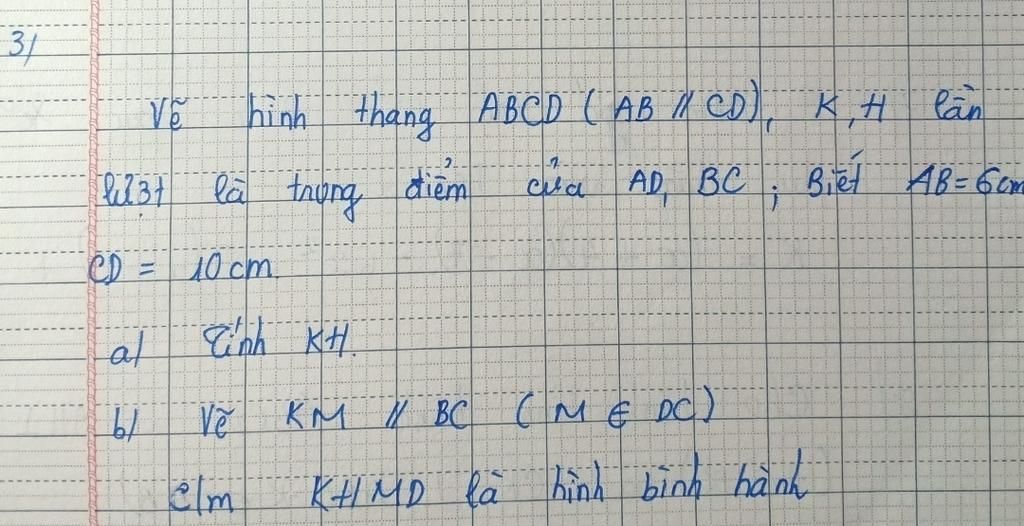 3/
Vẽ hình thang ABCD ( AB // CD), K, H lần
lượt là trung điểm của AD, BC ; Biết AB = 6cm
CD = 10 cm.
a/ Tính KH.
b/ Vẽ KM // BC ( M ∈ DC)
c/m KHMD là hình bình hành